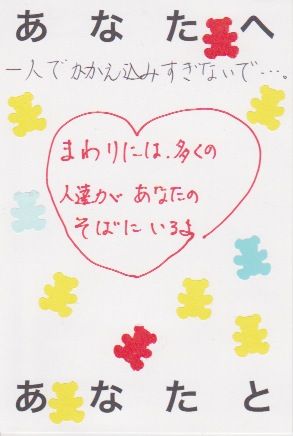 あなたへ
一人でかかえ込みすぎないで…。
まわりには、多くの
人達があなたの
そばにいるよ
あなたと